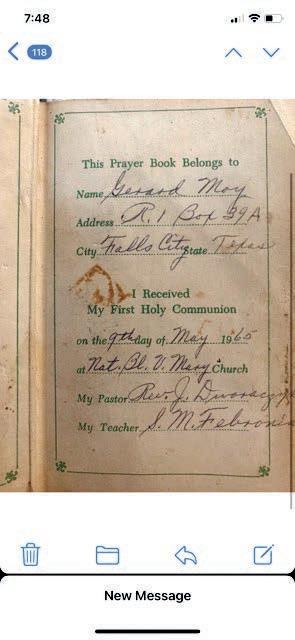 7:48
118
This Prayer Book Belongs to
Name Gerard Moy
Address R.1 Box 39A
City Falls City State Texas
I Received
My First Holy Communion
on the 9th day of May 1965
at Nat. Bl. V. Mary Church
My Pastor Rev. J.
My Teacher S. M. Febronia
New Message